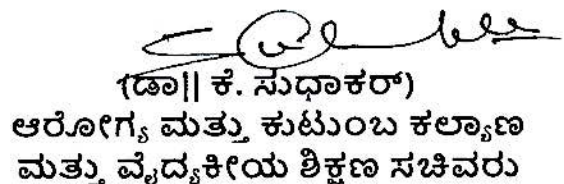 (ಡಾ|| ಕೆ. ಸುಧಾಕರ್)
ಆರೋಗ್ಯ ಮತ್ತು ಕುಟುಂಬ ಕಲ್ಯಾಣ
ಮತ್ತು ವೈದ್ಯಕೀಯ ಶಿಕ್ಷಣ ಸಚಿವರು